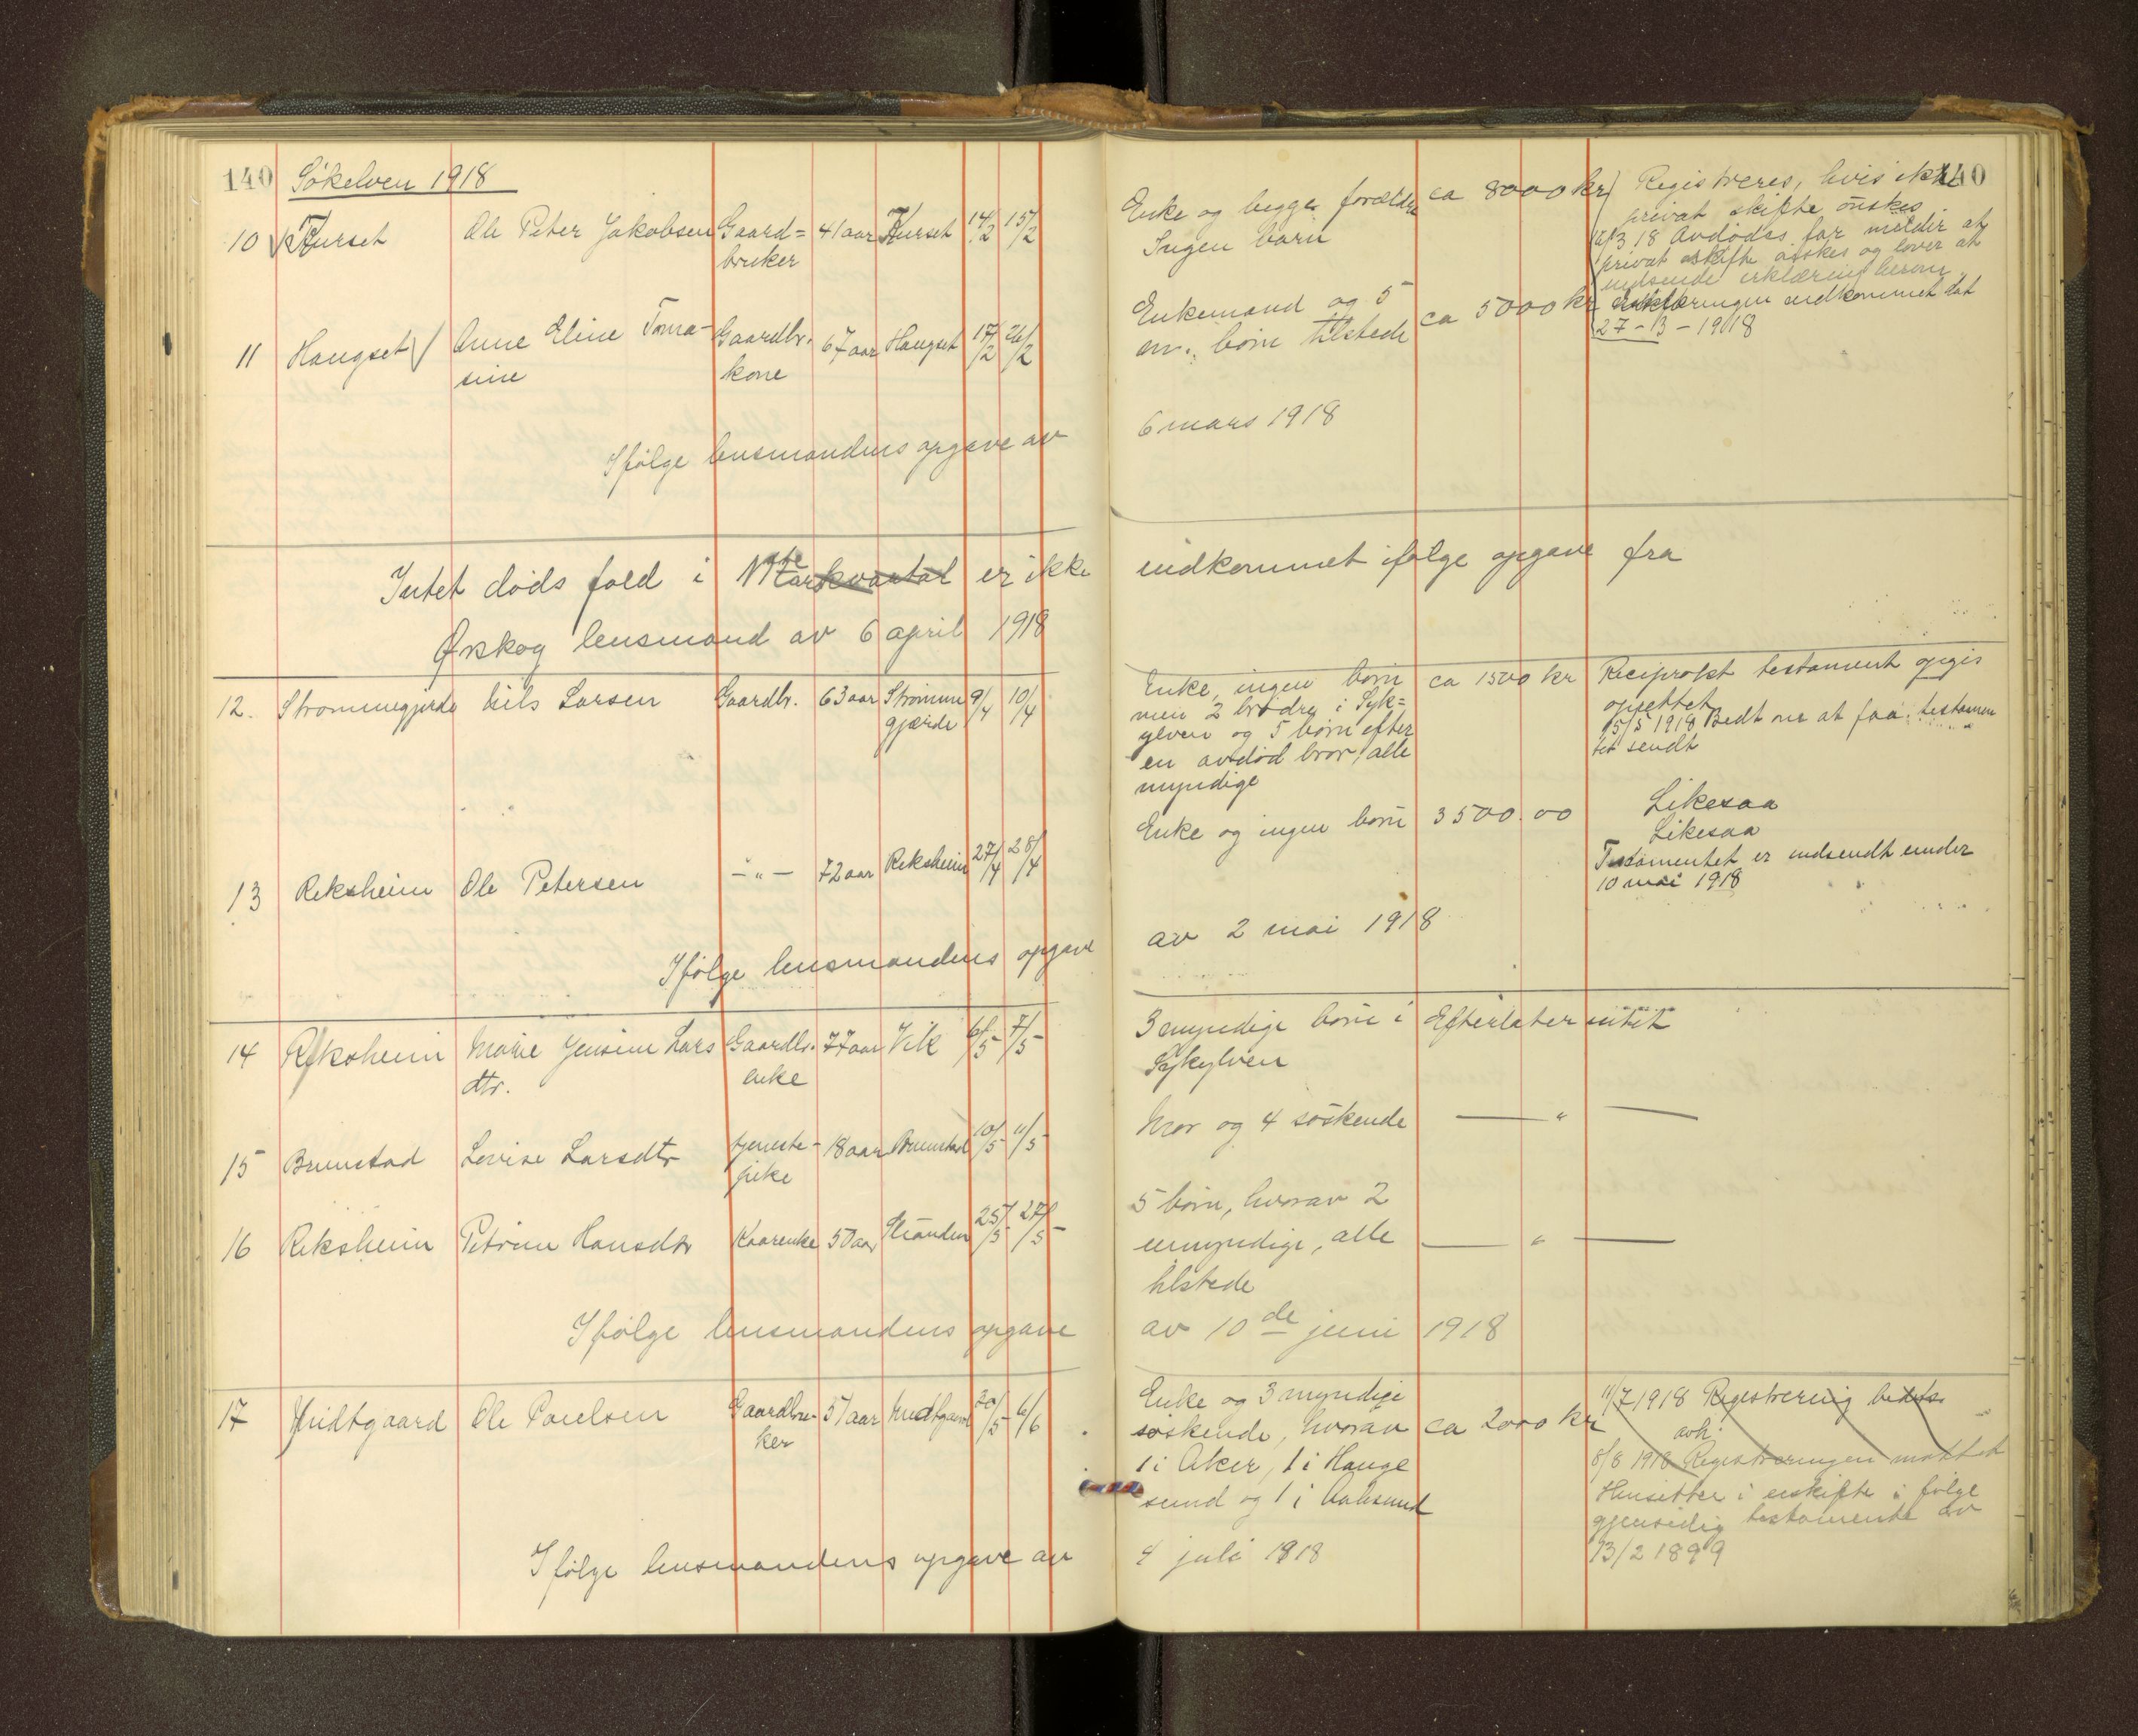 140 Søkelven 1918
10 Kurset Ole Peter Jakobsen Gaard= 41 aar Kurset 14/2 15/2
bruker
11 Haugset Anne Eline Toma- Gaardbr. 67 aar Haugset 17/2 26/2
sine kone
Ifølge lensmandens opgave av
Intet døds fald i er ikke
Ørskog lensmand av 6 april 1918
12. Strømmegjerde Nils Larsen Gaardbr. 63 aar Strømme 9/4 10/4
gjærde
13 Reksheim Ole Petersen -"- 72 aar Reksheim 27/4 28/4
Ifølge lensmandens opgave
14 Reksheim Marie Jensine Lars Gaardbr. 77 aar Vik 6/5 7/5
dtr. enke
15 Brunstad Lovise Larsdtr tjeneste- 18 aar Brunstad 10/5 11/5
pike
16 Reksheim Petrine Hansdtr Kaarenke 50 aar Stranden 25/5 27/5
Ifølge lensmandens opgave
17 Midtgaard Ole Paulsen Gaardbru- 57 aar Midtgaard 30/5 6/6
ker
Ifølge lensmandens opgave av
140
Enke og begge forældre ca 8000 kr Registreres, hvis ikke
Ingen barn privat skifte ønskes.
3 18 Avdødes far melder at
privat skifte ønskes og lover at
indsende erklæring herom
Enkemand og 5 ca 5000 kr erklæringen indkommet dat
m. børn tilstede 27-3-1918
6 mars 1918
indkommet ifølge opgave fra
Enke, ingen børn ca 1500 kr Reciprokt testament opgis
men 2 brødre i Syk= oprettet
ylven og 5 børn efter 15/5 1918 Bedt om at faa testamen
en avdød bror, alle tet sendt
myndige
Likesaa
Enke og ingen børn 3500.00 Likesaa
Testamentet er indsendt under
10 mai 1918
av 2 mai 1918
3 myndige børn i Efterlater intet
Sykylven
Mor og 4 søskende — " —
5 børn, hvorav 2
umyndige, alle — " —
tilstede
av 10de juni 1918
Enke og 3 myndige 11/7 1918 Registrering
søskende, hvorav ca 2000 kr avh.
1 i Aker, 1 i Hauge 8/8 1918 Registreringen mottat
sund og 1 i Aalesund Hensitter i uskifte i følge
gjensidig testamente av
4 juli 1918 13/2 1899